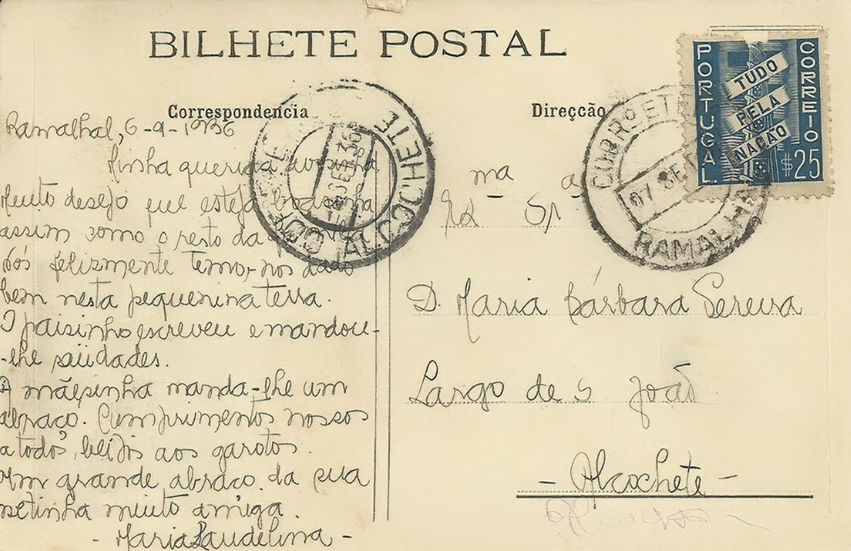 BILHETE POSTAL
Correspondencia
Direcção
PORTUGAL
CORREIO
TUDO
PELA
NAÇÃO
$25
RAMALHAL
07 SE
ALCOCHETE
Ramalhal, 6-9-1936
Minha querida avósinha
Muito desejo que esteja boasinha
assim como o resto da
Nós felizmente temo-nos dado
bem nesta pequenina terra.
O paisinho escreveu e mandou-
-lhe saüdades.
A mãesinha manda-lhe um
abraço. Cumprimentos nossos
a todos, beijos aos garotos.
Um grande abraço da sua
netinha muito amiga.
- Maria Laudelina -
Exma Sra
D. Maria Bárbara Pereira
Largo de S João
- Alcochete -